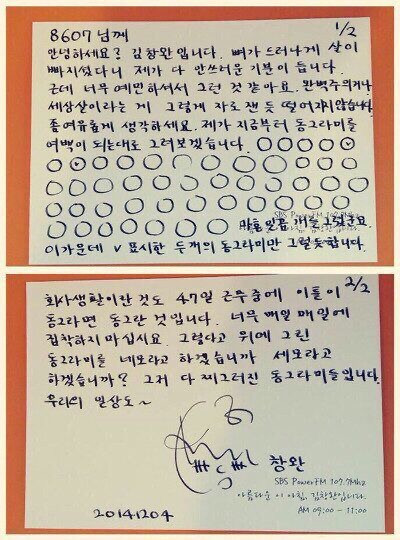 8607님께
1/2
안녕하세요? 김창완입니다. 뼈가 드러나게 살이
빠지셨다니 제가 다 안쓰러운 기분이 듭니다.
근데 너무 예민하셔서 그런 것 같아요. 완벽주의거나
세상살이라는 게 그렇게 자로 잰 듯 떨어지지않습니다.
좀 여유롭게 생각하세요. 제가 지금부터 동그라미를
여백이 되는대로 그려보겠습니다.
마흔일곱 개를 그렸군요.
SBS PowerFM 107.7Mhz
이 가운데 v 표시한 두 개의 동그라미만 그럴듯합니다.
2/2
회사생활이란 것도 47일 근무 중에 이틀이
동그라면 동그란 것입니다. 너무 매일 매일에
집착하지 마십시오. 그렇다고 위에 그린
동그라미를 네모라고 하겠습니까 세모라고
하겠습니까? 그저 다 찌그러진 동그라미들입니다.
우리의 일상도~
창완
SBS PowerFM 107.7Mhz
아름다운 이 아침, 김창완입니다.
AM 09:00 - 11:00
20141204